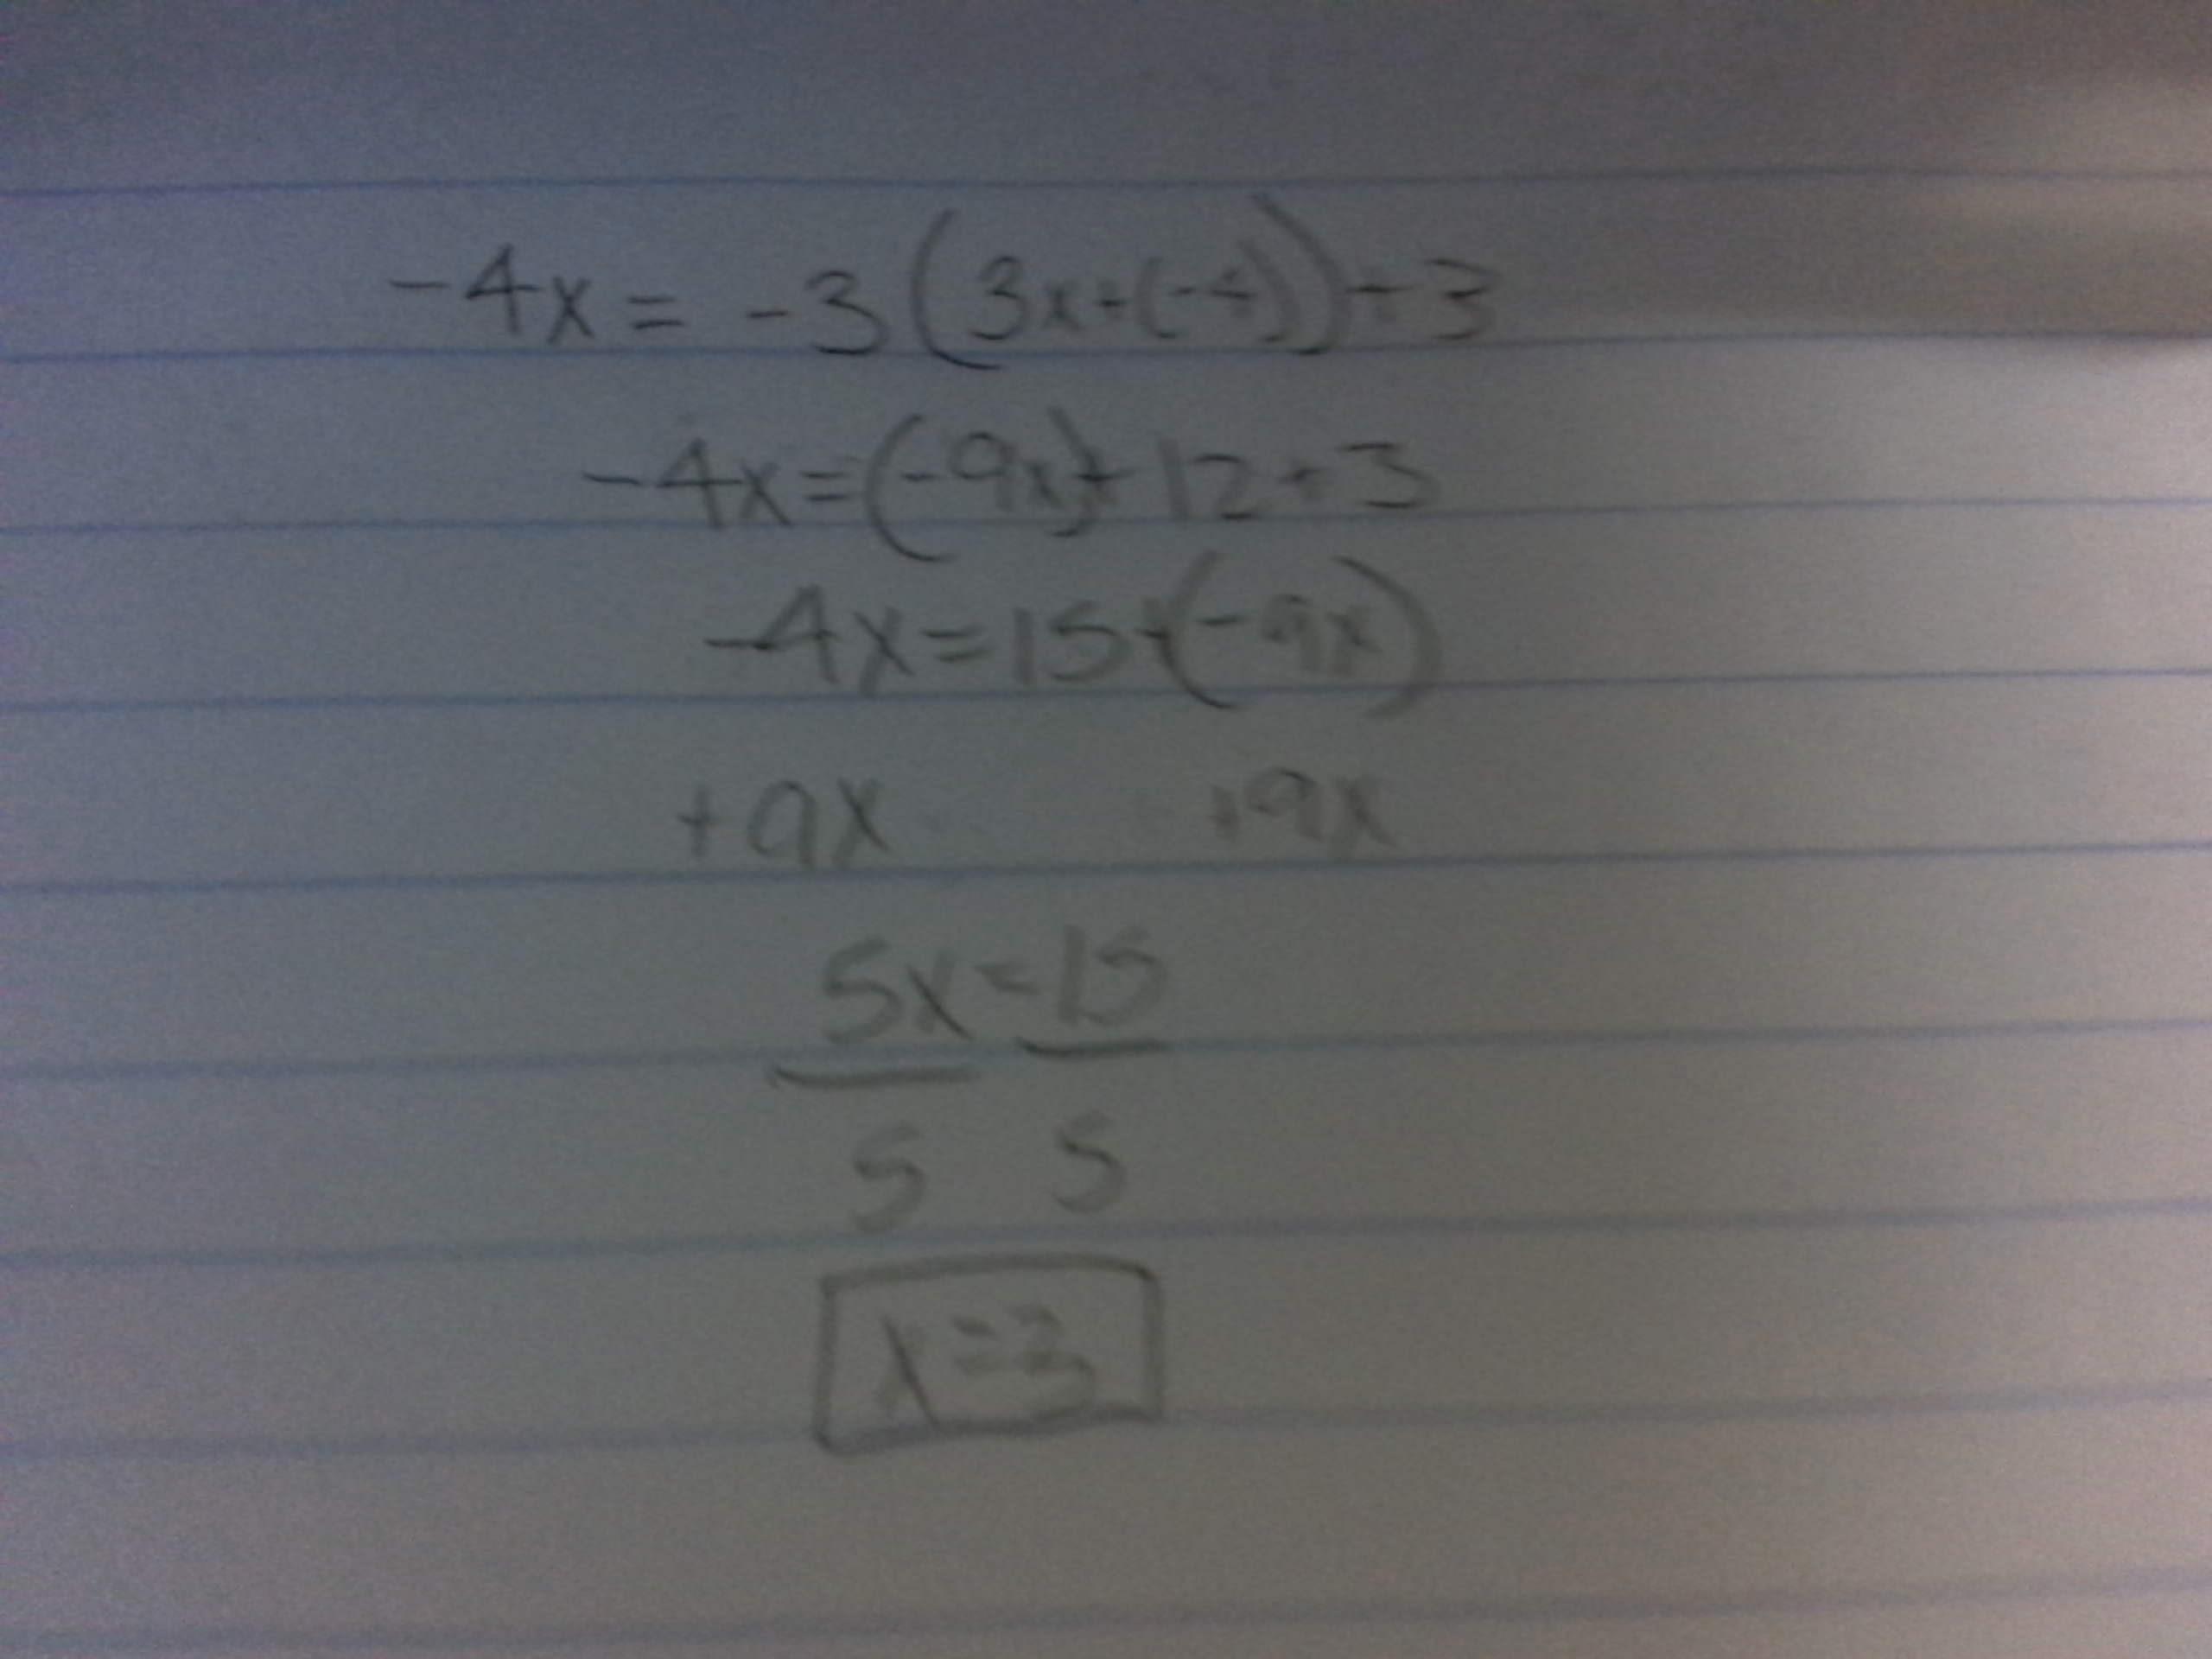 -4x = -3(3x+(-4))+3
-4x=(-9x)+12+3
-4x=15+(-9x)
+9x +9x
5x=15
5 5
x=3